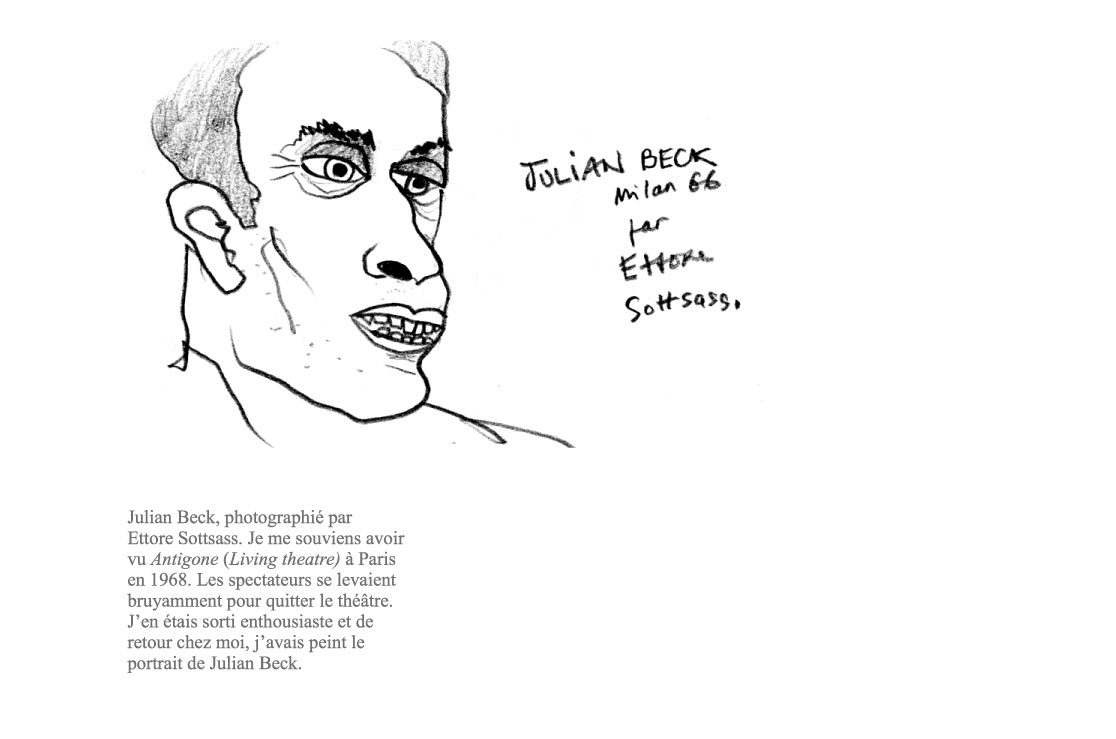 JULIAN BECK
Milan 66
par
Ettore
Sottsass.
Julian Beck, photographié par
Ettore Sottsass. Je me souviens avoir
vu Antigone (Living theatre) à Paris
en 1968. Les spectateurs se levaient
bruyamment pour quitter le théâtre.
J’en étais sorti enthousiaste et de
retour chez moi, j’avais peint le
portrait de Julian Beck.